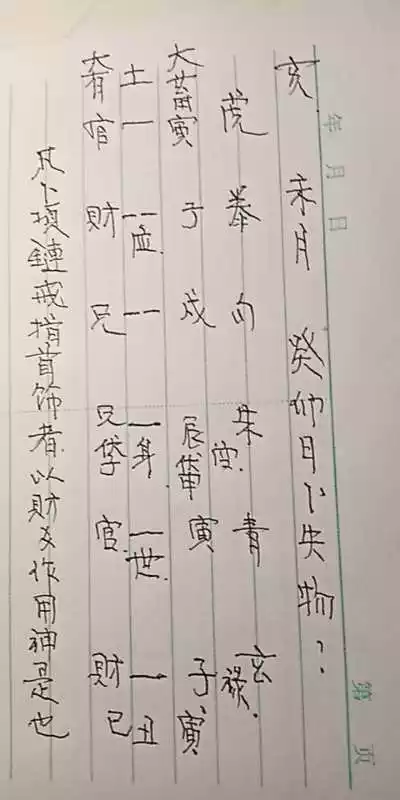 年 月 日
第 页
亥 未月 癸卯日卜失物?
虎 勾 朱 青 玄
大畜寅 子 戌 辰 申 寅 子 寅 禄
土 一 一一应 一一 一 一世 一 丑
官 財 兄 兄 官 財 巳
凡卜項鏈戒指首饰者以財爻作用神是也